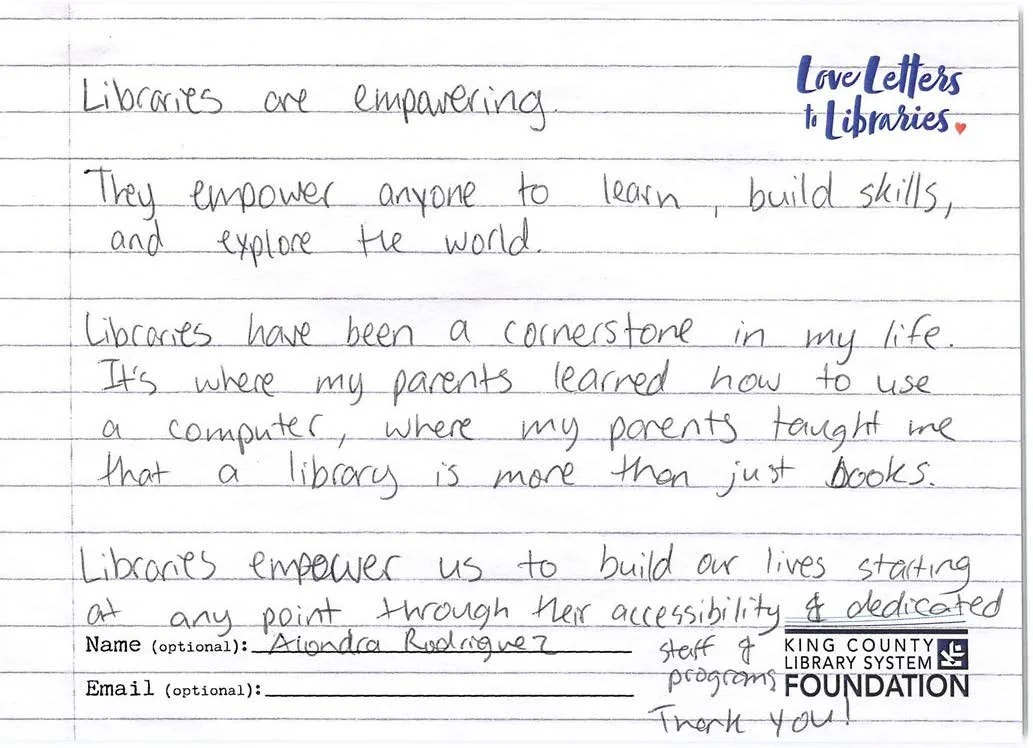 Love Letters
to Libraries
Libraries are empowering.
They empower anyone to learn, build skills,
and explore the world.
Libraries have been a cornerstone in my life.
It's where my parents learned how to use
a computer, where my parents taught me
that a library is more than just books.
Libraries empower us to build our lives starting
at any point through their accessibility & dedicated
staff &
programs
Thank you!
Name (optional): Alondra Rodriguez
Email (optional):
KING COUNTY
LIBRARY SYSTEM
FOUNDATION